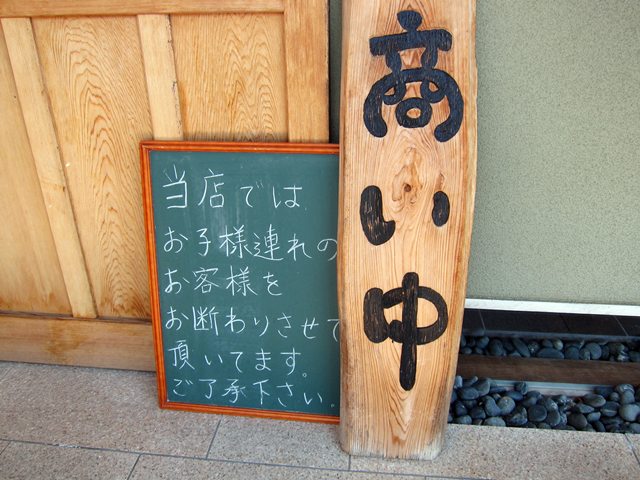 当店では
お子様連れの
お客様を
お断わりさせて
頂いてます。
ご了承下さい。
商い中